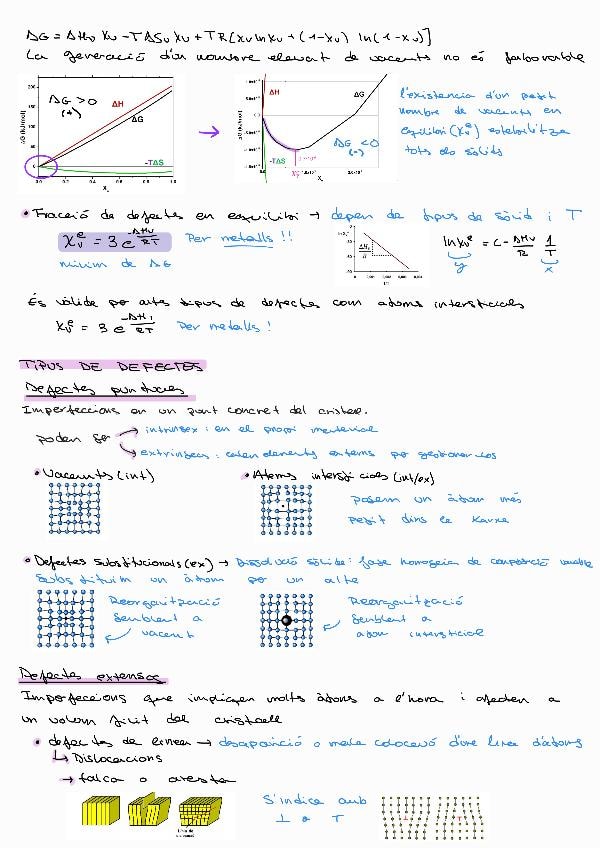 ΔG = ΔHv Xv - TΔSv Xv + TR[Xv ln Xv + (1-Xv) ln(1-Xv)]
La generació d'un nombre elevat de vacants no és favorable
ΔG > 0
(+)
ΔH
ΔG
-TΔS
ΔG (kJ/mol)
200
150
100
50
0
0.0 0.2 0.4 0.6 0.8 1.0
Xv
→
ΔH
ΔG
ΔG < 0
(-)
-TΔS
ΔG (kJ/mol)
Xv
l'existència d'un petit
nombre de vacants en
equilibri (Xvᵉ) estabilitza
tots els sòlids
• Fracció de defectes en equilibri → depen de tipus de sòlid i T
Xvᵉ = 3 e^(-ΔHv/RT) Per metalls !!
mínim de ΔG
ln Xvᵉ = C - ΔHv/R 1/T
y x
És vàlida per altres tipus de defectes com atoms intersticials
Xvᵉ = 3 e^(-ΔHi/RT) Per metalls !
TIPUS DE DEFECTES
Defectes puntuals
Imperfeccions en un punt concret del cristall.
poden ser → intrínsecs : en el propi material
→ extrínsecs : elements externs
• Vacants (int) • Atoms intersticials (int/ex)
posem un àtom més
petit dins la xarxa
• Defectes substitucionals (ex) → Dissolució sòlida : fase homogenia de composició variable
Substituim un àtom per un altre
Reorganització
semblent a
vacant
Reorganització
semblent a
atom intersticial
Defectes extensos
Imperfeccions que impliquen molts àtoms a l'hora i afecten a
un volum finit del cristall
• defectes de linea → desaparició o mala colocació d'una linea d'àtoms
↳ Dislocacions
→ falca o aresta
S'indica amb
⊥ o T